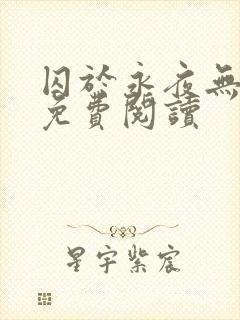 囚於永夜無
免費閱讀
星宇紫宸